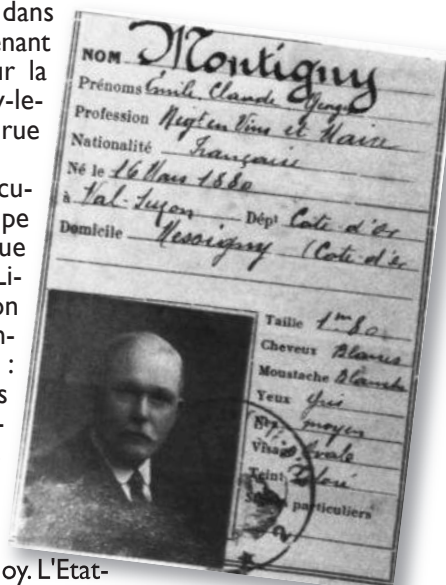 dans
enant
ur la
y-le-
rue
cu-
pe
ue
Li-
on
n-
:
s
-
oy. L'Etat-
NOM Montigny
Prénoms Émile, Claude Georges
Profession Négt en Vins et Maire
Nationalité Française
Né le 16 Mars 1880
à Val-Suzon Dépt Cote-d'Or
Domicile Messigny (Cote-d'Or
Taille 1m80
Cheveux Blancs
Moustache Blanche
Yeux gris
Nez moyen
Visage Ovale
Teint Coloré
Signes particuliers